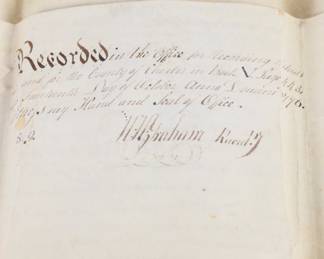 Recorded in the Office for Recording of Deeds
and for the County of Chester in Book V Page 443
Day of October Anno Domini 1776.
my Hand and Seal of Office.
Wm Graham Record.r